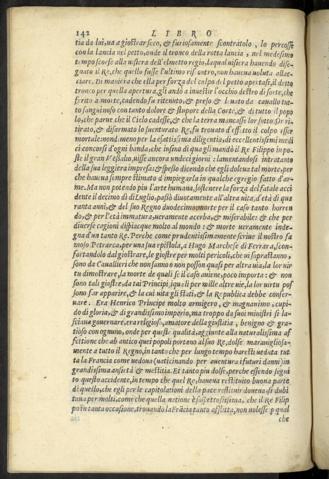 142 LIBRO
tia da lui, ua a giostrar seco, & furiosamente scontratolo, lo percosse
con la lancia nel petto, onde il tronco della rotta lancia, nel medesimo
tempo scorse alla uisiera dell'elmetto regio, la qual uisiera hauendo dise
gnato il Re, che quello fusse l'ultimo riscontro, non haueua uoluta allac
ciare. Di maniera che ella per forza del colpo del petto apertasi, il detto
tronco per quella apertura, gli andò a inuestir l'occhio destro di sorte, che
ferito a morte, cadendo fu ritenuto, & preso & leuato da cauallo tut-
to sanguinoso con tanto dolore & stupore della Corte, & di tutto il popo
lo, che parue che il Cielo cadesse, & che la terra mancasse lor sotto. Si ri
tirato, & disarmato lo suenturato Re, fu trouato d'effatto il colpo esser
mortale: nondimeno per la esattissima diligentia de eccellentissimi medi
ci concorsi d'ogni banda, che infino da quegli mandò il Re Filippo in po-
ste il gran Vessalio, uisse ancora undeci giorni: lamentandosi intratanto
della sua leggiera impresa: & spesso dicendo che egli doleua tal morte, per
che haueua sempre stimato d'impiegarla in qualche egregio fatto d'ar-
me. Ma non potendo piu l'arte humana, sostenere la forza del fatale acci
dente il decimo di di Luglio, passò diuotamente all'altra uita, d'età di qua
ranta anni, & del suo Regno duodecimo: morte per il caso tanto horren
do, & per l'età immatura, ueramente acerba, & miserabile: & che per
diuerse cagioni dispiacque molto al mondo: & morte ueramente inde-
gna d'un tanto Re. Perche come prudentissimamente scriue il nostro fa
moso Petrarca, per una sua epistola, a Hugo Marchese di Ferrara, scon-
fortandolo dal giostrare, le giostre per molti pericoli, che ui soprastanno,
sono da Cauallieri che non sanno o non posson quasi per altra uia, la lor uir
tu dimostrare, la morte de quali se il caso auiene, poco importa: & non
sono tali giostre, da tai Principi, i quali per mille altre uie, la lor uirtu pos
sono far apparire, & la cui uita gli stati, & la Republica debbe conser-
uare. Era Henrico Principe molto armigero, & magnanimo, cupi-
do di gloria, & di grandissimo imperio, ma troppo da suoi ministri si la-
sciaua gouernare, era religioso, amatore della giustitia, benigno & gra-
tioso con ognuno, onde per queste qualità, aggiunte alla naturalissima af
fettione che ab antico quei popoli portano al suo Re, dolse marauigliosa-
mente a tutto il Regno, in tanto che per lungo tempo haresti ueduta tut
ta la Francia come uedoua (uaticinando per auentura i futuri danni) in
grandissima ansietà & mestitia. Et tanto piu dolse, perche essendo segui
to questo accidente, in tempo che quel Re, haueua restituito buona parte
di quello, che egli per le capitolationi della pace restituir doueua si dubi
taua per molti, come che quella natione è sospettosissima, che il Re Filip
po in tanta occasione, trouando la Frācia tanto afflitta, non uolesse p qual
che